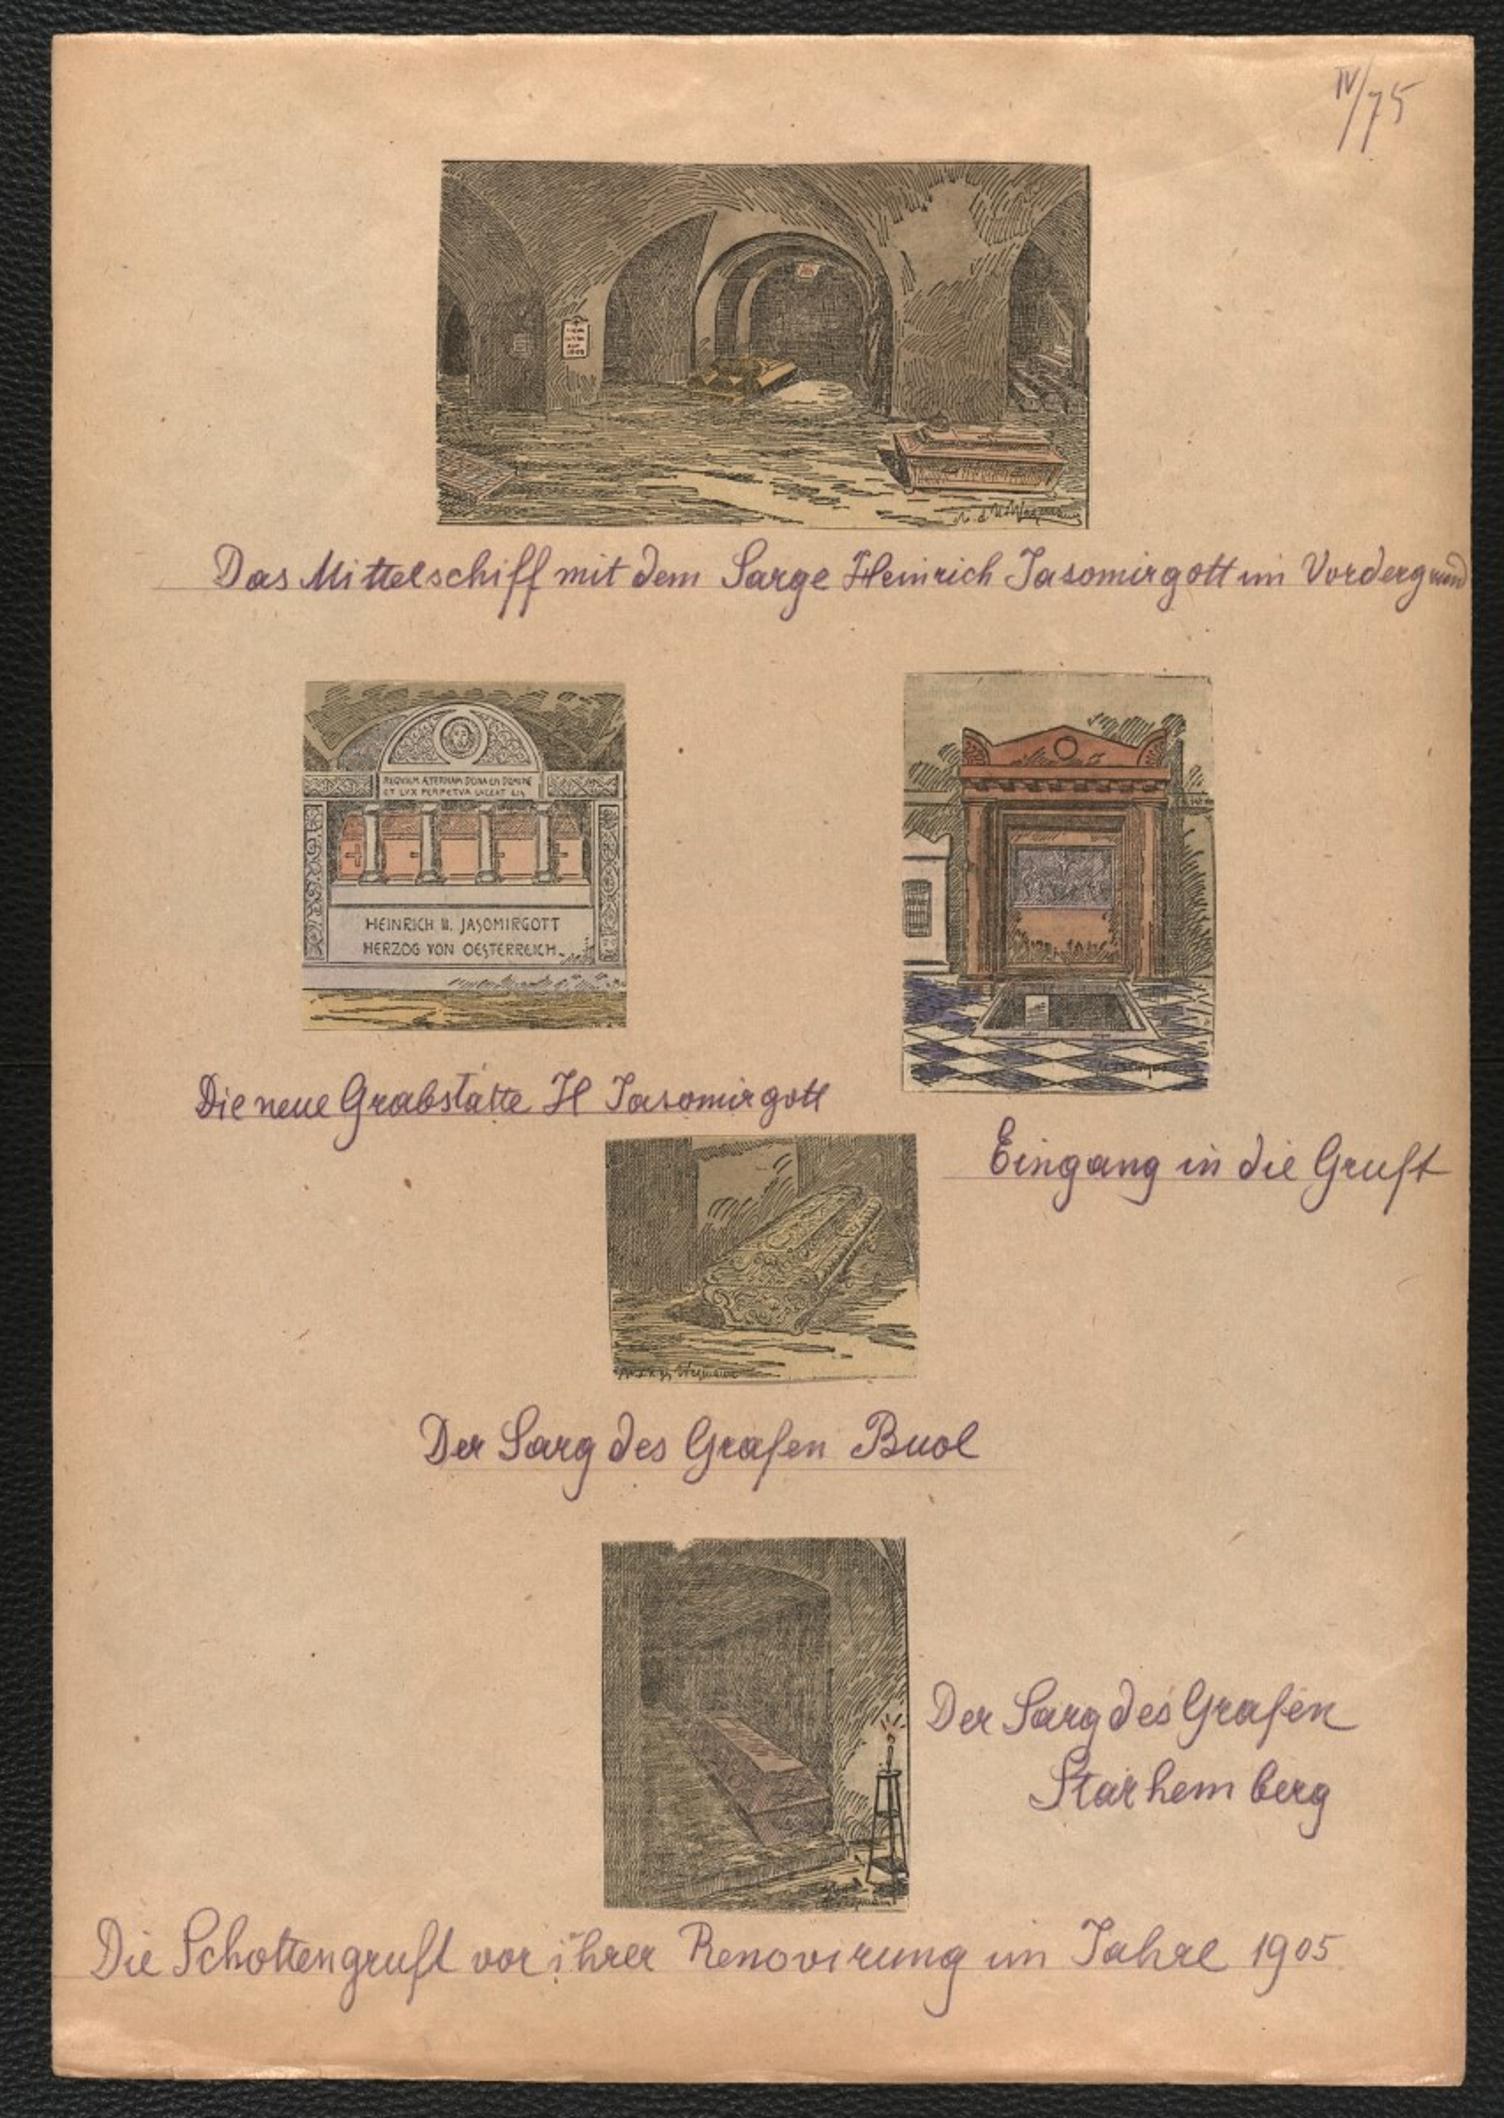 IV/75
Das Mittelschiff mit dem Sarge Heinrich Jasomirgott im Vordergrund
REQVIEM ÆTERNAM DONA EIS DOMINE
ET LVX PERPETVA LVCEAT EIS
HEINRICH II. JASOMIRGOTT
HERZOG VON OESTERREICH
Die neue Grabstätte H Jasomirgott
Eingang in die Gruft
Der Sarg des Grafen Buol
Der Sarg des Grafen
Starhemberg
Die Schottengruft vor ihrer Renovirung im Jahre 1905